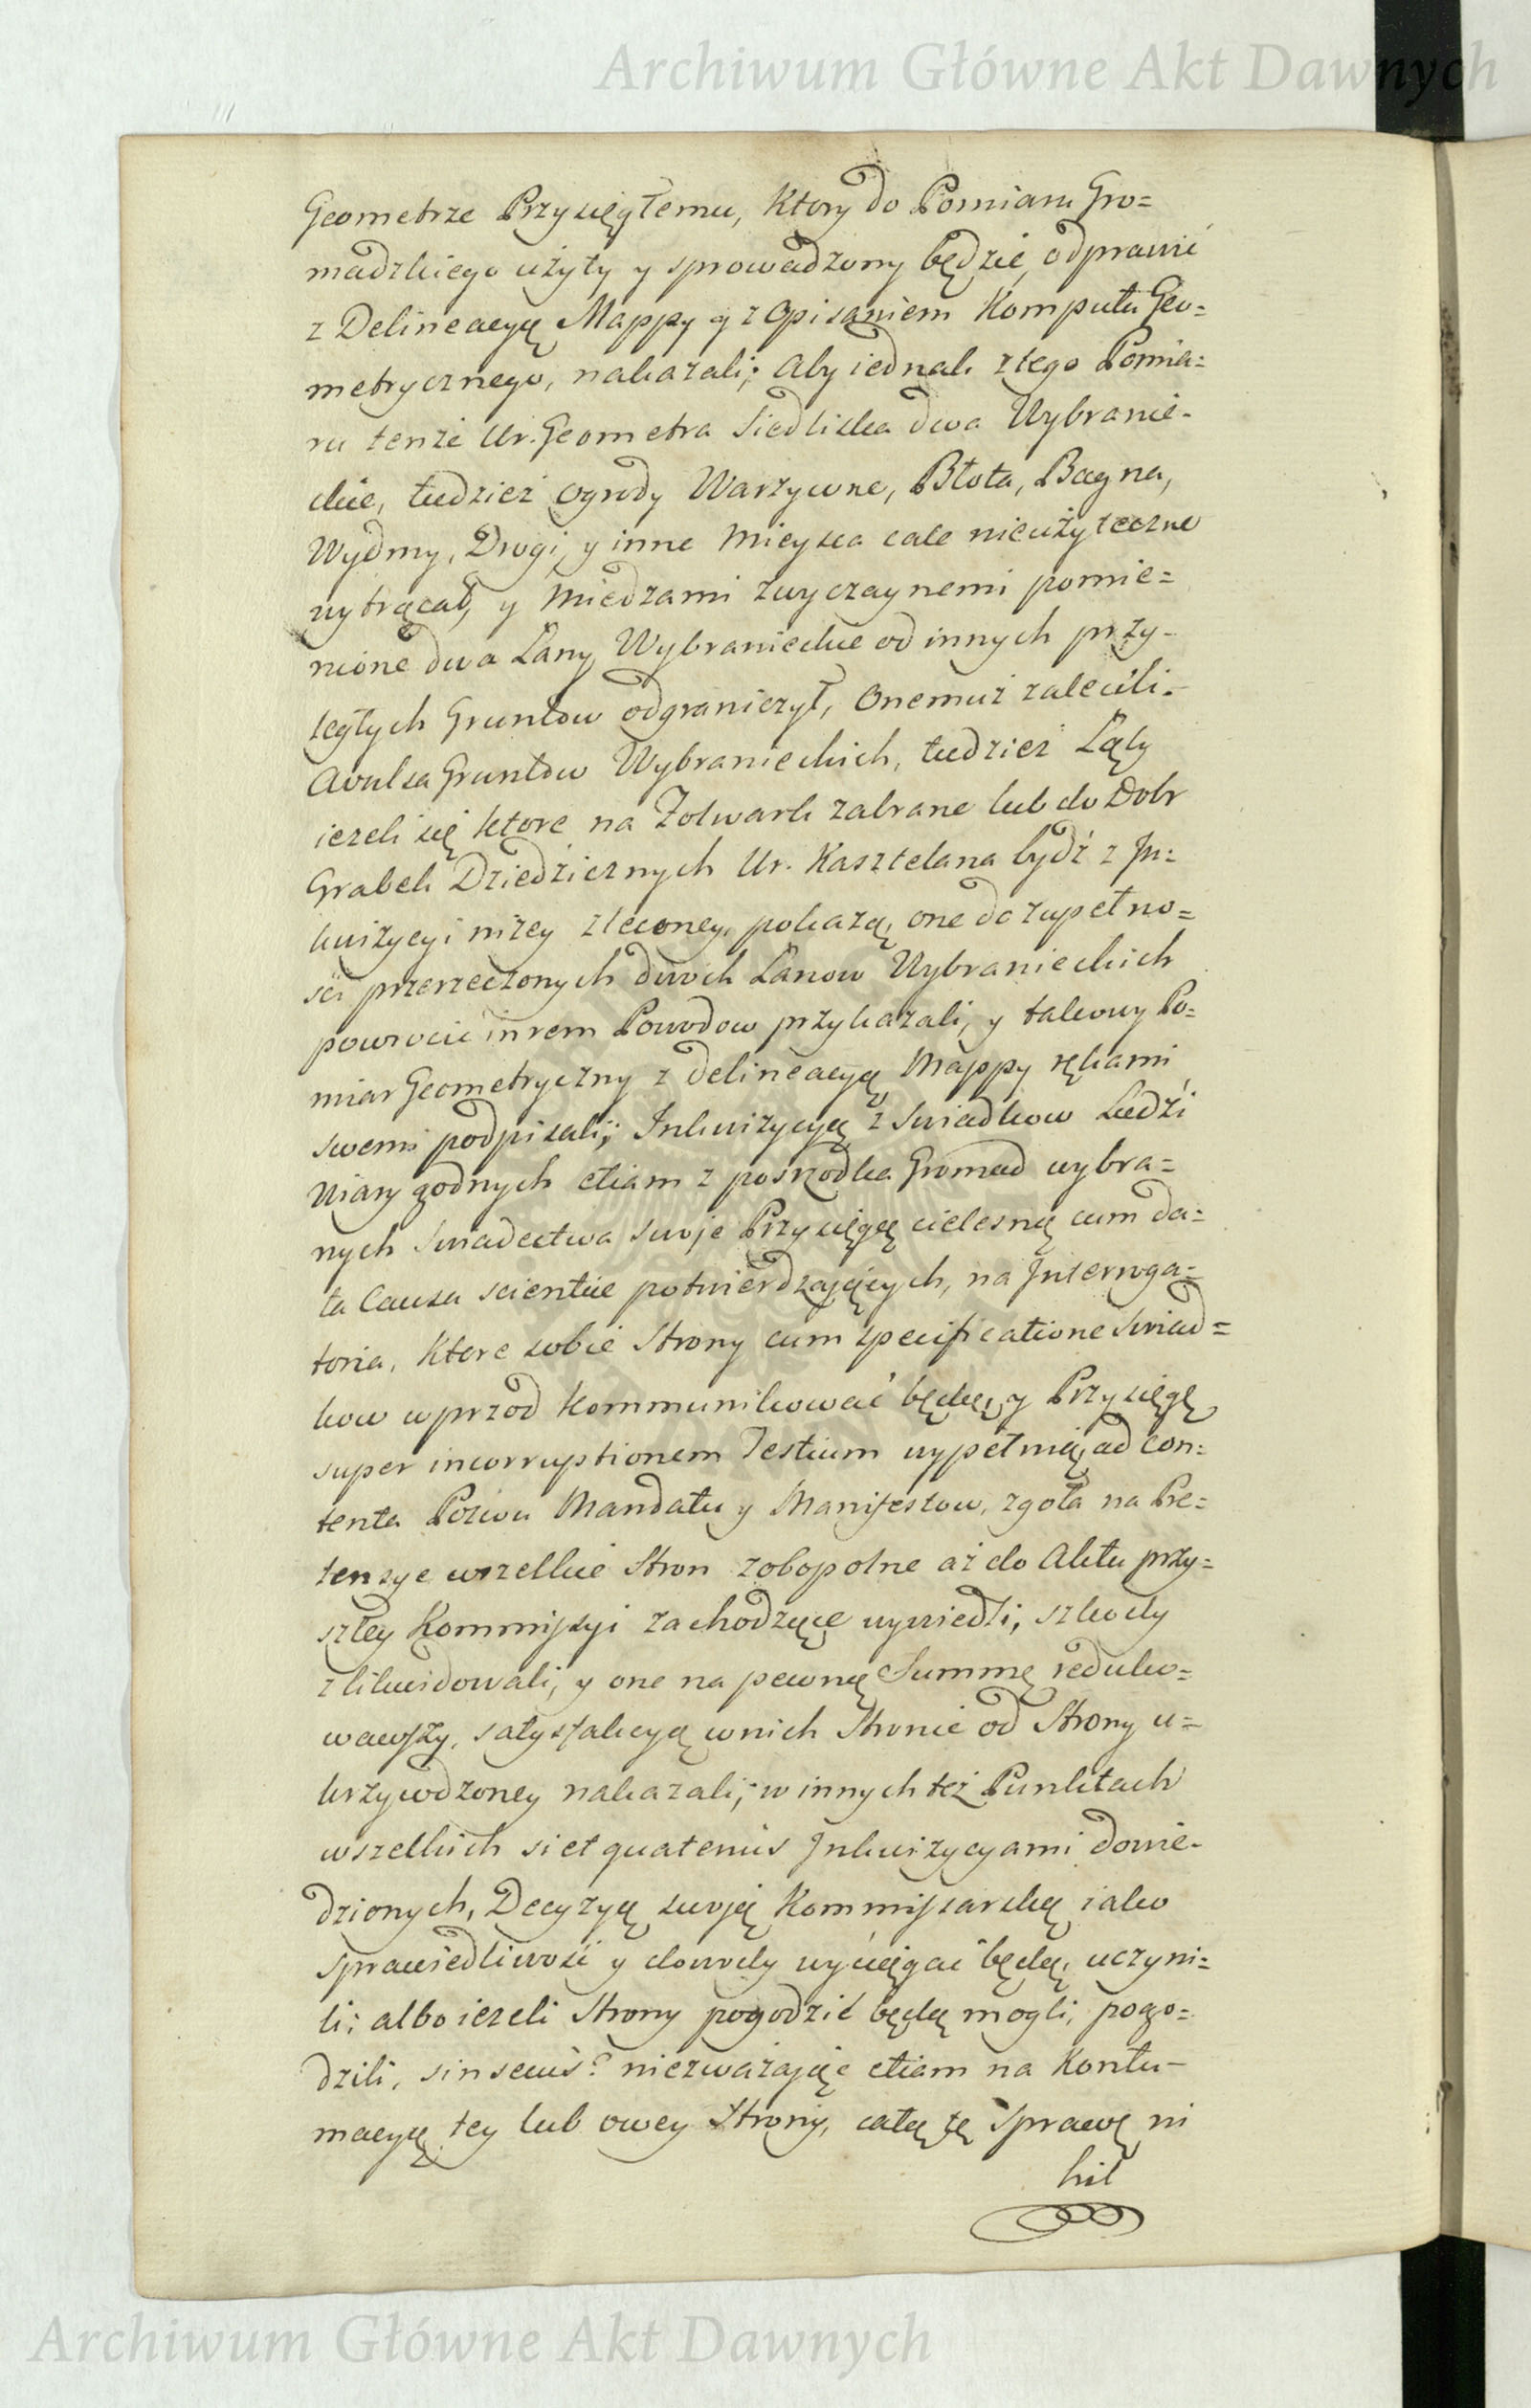 Archiwum Główne Akt Dawnych
Geometrze Przysięgłemu, Ktory do Pomiaru Gro=
madzkiego użyty y sprowadzony będzie, odprawić
z Delineacyą Mappy y z Opisaniem Komputu Geo=
metrycznego, nakazali; Aby iednak z tego Pomia=
ru tenże Ur. Geometra Siedliska dwa Wybranie-
ckie, tudzież Ogrody Warzywne, Błota, Bagna,
Wydmy, Drogi, y inne Mieysca cale nieużyteczne
wytrącał, y Miedzami zwyczaynemi pomie=
nione dwa Łany Wybranieckie od innych przy-
ległych Gruntow odgraniczył, Onemuż zalecili.
Avulsa Gruntow Wybranieckich, tudzież Łąky
ieżeli się ktore na Folwark zabrane lub do Dobr
Grabek Dziedzicznych Ur. Kasztelana bydź z In=
kwizycyi niżey zleconey, pokażą, one do zupełno=
ści przerzeczonych dwoch Łanow Wybranieckich
powrocić in rem Powodow przykazali, y takowy Po=
miar Geometryczny z delineacyą Mappy rękami
swemi podpisali; Inkwizycyą z Swiadkow Ludzi
Wiary godnych etiam z poszrodka Gromad wybra=
nych Swiadectwa swoje Przysięgą cielesną cum da=
ta Causa scientiæ potwierdzających, na Interroga=
toria, Ktore sobie Strony cum specificatione Swiad=
kow wprzod kommunikować będą, y Przysięgę
super incorruptionem Testium wypełnią, ad con=
tenta Pozwu Mandatu y Manifestow, zgoła na Pre=
tensye wszelkie Stron zobopolne aż do Aktu przy=
szłey Kommissyi zachodzące wywiedli, szkody
zlikwidowali, y one na pewną Summę reduko=
wawszy, satysfakcyą w nich Stronie od Strony u=
krzywdzoney nakazali; w innych też Punktach
wszelkich si et quatenus Inkwizycyami dowie-
dzionych, Decyzyą swoją Kommissarską iako
sprawiedliwość y dowody wyciągać będą, uczyni=
li; albo ieżeli Strony pogodzić będą mogli, pogo=
dzili, sin secus? niezważając etiam na Kontu-
macyą tey lub owey Strony, całą tę Sprawę ni
hil
Archiwum Główne Akt Dawnych